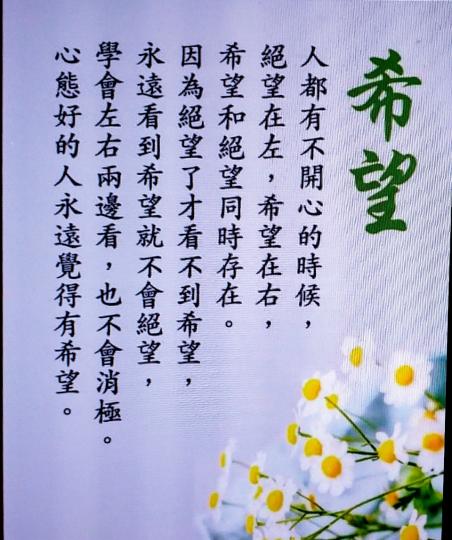 希望
人都有不開心的時候，
絕望在左，希望在右，
希望和絕望同時存在。
因為絕望了才看不到希望，
永遠看到希望就不會絕望，
學會左右兩邊看，也不會消極。
心態好的人永遠覺得有希望。